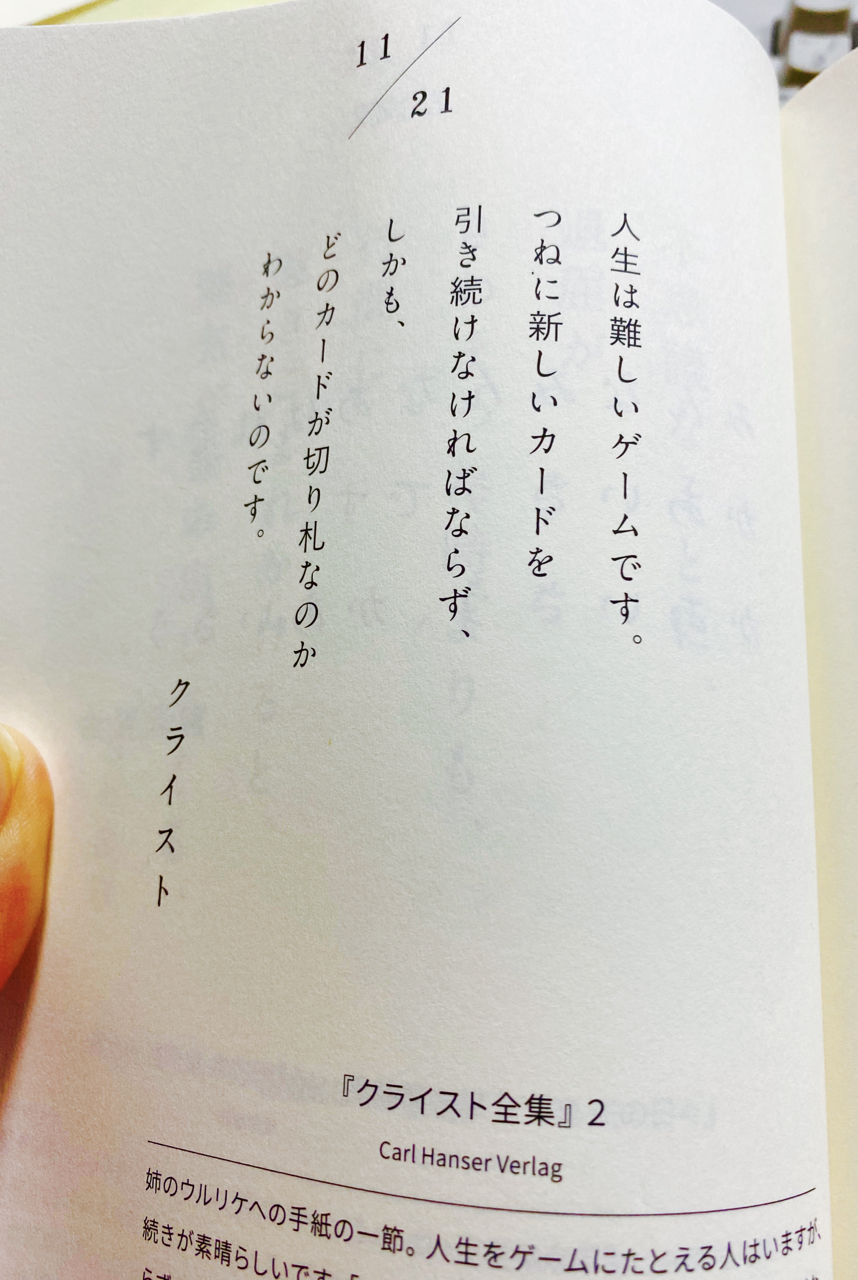 11
21
人生は難しいゲームです。
つねに新しいカードを
引き続けなければならず、
しかも、
どのカードが切り札なのか
わからないのです。
クライスト
『クライスト全集』2
Carl Hanser Verlag
姉のウルリケへの手紙の一節。人生をゲームにたとえる人はいますが、
続きが素晴らしいです。「
らず